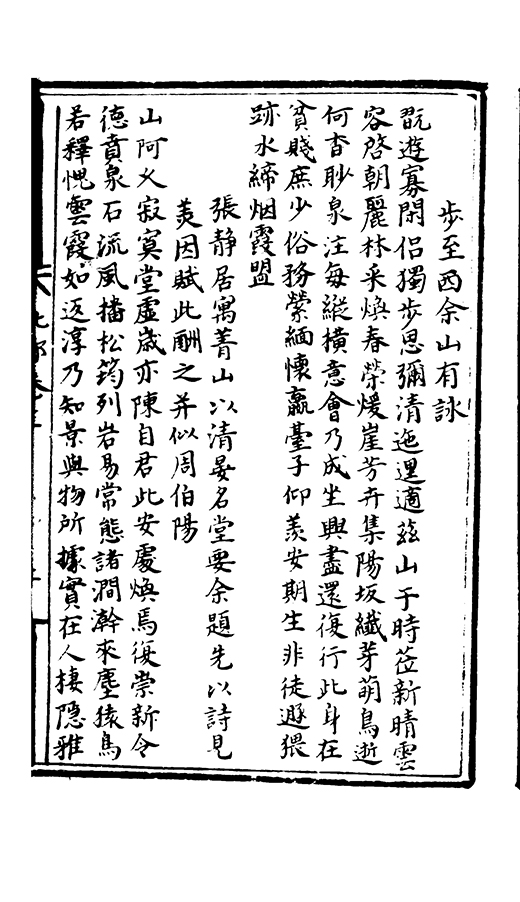 步至西余山有詠
翫遊寡閑侶獨步思彌清迤邐適茲山于時莅新晴雲
容啓朝麗林采煥春榮煖崖芳卉集陽坂纖芽萌鳥逝
何杳眇泉注每縱橫意會乃成坐興盡還復行此身在
貧賤庶少俗務縈緬懷羸臺子仰羨安期生非徒遯猥
跡永締烟霞盟
張靜居寓菁山以清晏名堂要余題先以詩見
羑因賦此酬之并似周伯陽
山阿久寂寞堂虛歳亦陳自君此安處煥焉復崇新令
德賁泉石流風播松筠列岩易常態諸澗澣來塵猿鳥
若釋愧雲霞如返淳乃知景與物所據實在人棲隐雅